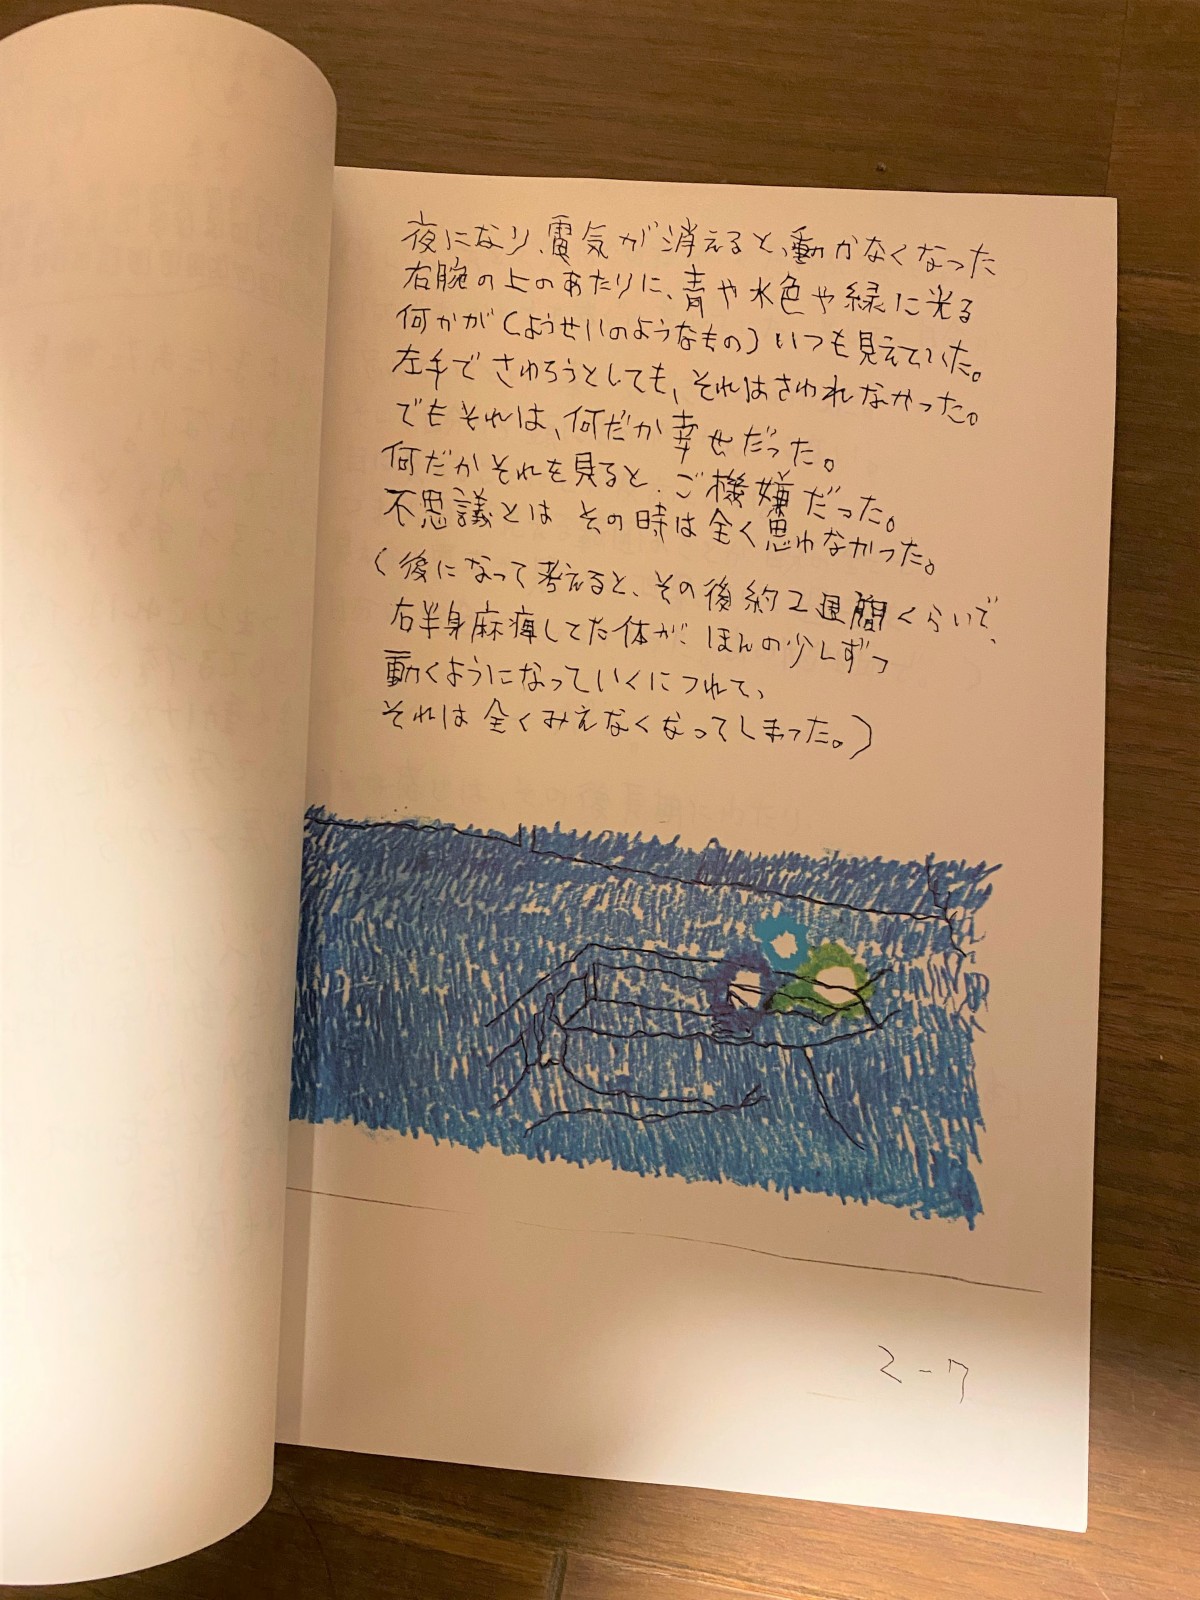 夜になり、電気が消えると、動かなくなった
右腕の上のあたりに、青や水色や緑に光る
何かが(ようせいのようなもの)いつも見えていた。
左手でさわろうとしても、それはさわれなかった。
でもそれは、何だか幸せだった。
何だかそれを見ると、ご機嫌だった。
不思議とは その時は全く思わなかった。
(後になって考えると、その後約2週間くらいで、
右半身麻痺してた体が、ほんの少しずつ
動くようになっていくにつれて、
それは全くみえなくなってしまった。)
2-7